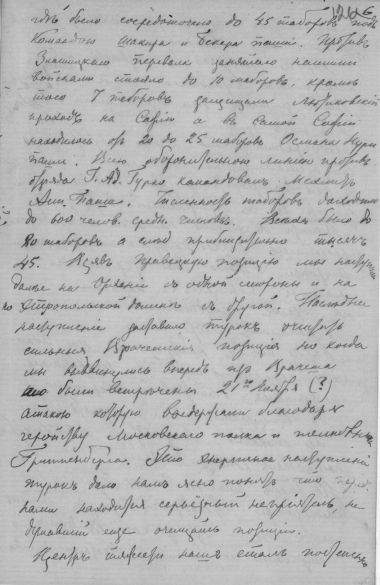 126
гдѣ было сосредоточено до 45 таборовъ подъ
командою Шакира и паши. Противъ
Златицкаго перевала занятаго нашими
войсками стояло до 10 таборовъ, кромѣ
того 7 таборовъ защищали
проходъ на Софію а въ самой Софіи
находилось отъ 20 до 25 таборовъ Османа Нури
паши. Всею оборонительною линіею противъ
отряда Г. Ад. Гурко командовалъ Мехметъ
Али Паша. Численность таборовъ доходила
до 600 челов. средн. числомъ. было до
80 таборовъ а слѣд приблизительно тысячъ
45. Взявъ Правецкую позицію мы наступали
далѣе на Орхание съ одной стороны и на
Этропольской съ другой.
наступленіе заставило турокъ очистить
сильныя Врачешския позиціи но когда
мы выдвинулись впередъ изъ Врачеша
то были встрѣчены 21го Ноября (?)
атакою которую выдержали благодаря
геройству Московскаго полка и полковника
Гриппенберга. Это энергичное наступленіе
турокъ дало намъ ясно понять что передъ
нами находится серьезный непріятель, не
думавшій еще очищать позиціи.
Центръ тяжести нашъ сталъ